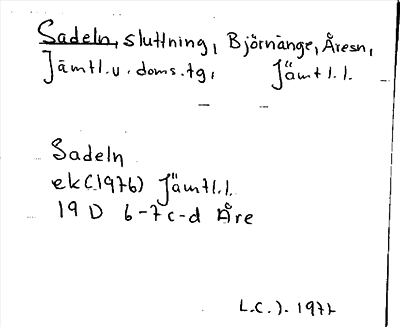 Sadeln, sluttning, Björnänge, Åresn,
Jämtl.v.doms.tg, Jämtl.l.
Sadeln
ek(1976) Jämtl.l.
19 D 6-7c-d Åre
L.C.J. 1977